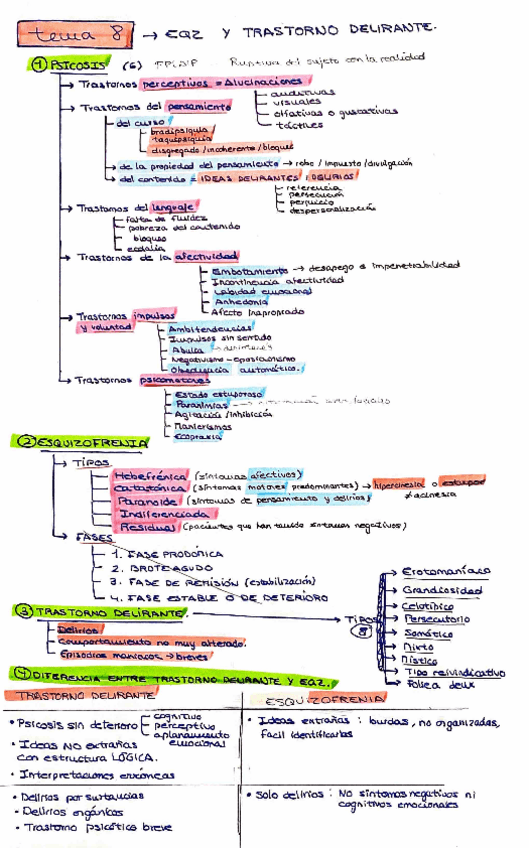 tema 8 → EQZ Y TRASTORNO DELIRANTE.
① PSICOSIS (6) Ruptura del sujeto con la realidad
→ Trastornos perceptivos = Alucinaciones
auditivas
visuales
olfativas o gustativas
táctiles
→ Trastornos del pensamiento
del curso
bradipsiquia
taquipsiquia
disgregado/incoherente/bloqueo
→ de la propiedad del pensamiento → robo / impuesto/divulgación
→ del contenido = IDEAS DELIRANTES
referencia
persecución
perjuicio
despersonalización
→ Trastornos del lenguaje
falta de fluidez
pobreza del contenido
bloqueo
ecolalia
→ Trastornos de la afectividad
Embotamiento → desapego e impenetrabilidad
Incontinencia afectividad
Labilidad emocional
Anhedonia
Afecto inapropiado
→ Trastornos impulsos y voluntad
Ambitendencias
Impulsos sin sentido
Abulia
Negativismo - oposicionismo
Obediencia automática.
→ Trastornos psicomotores
Estado estuporoso
Paramimias
Agitación/Inhibición
Manierismos
Ecopraxia
② ESQUIZOFRENIA
→ TIPOS
Hebefrénica (síntomas afectivos)
Catatónica (síntomas motores predominantes) → hipercinesia o estupor
acinesia
Paranoide (síntomas de pensamiento y delirios)
Indiferenciada
Residual (pacientes que han tenido síntomas negativos)
→ FASES
1. FASE PRODÓMICA
2. BROTE AGUDO
3. FASE DE REMISIÓN (estabilización)
4. FASE ESTABLE O DE DETERIORO
③ TRASTORNO DELIRANTE. → TIPOS
Delirios
Comportamiento no muy alterado.
Episodios maníacos → breves
→ Erotomaníaco
→ Grandiosidad
→ Celotípico
→ Persecutorio
→ Somático
→ Mixto
→ Místico
→ Tipo reivindicativo
→ Folie a deux
④ DIFERENCIA ENTRE TRASTORNO DELIRANTE Y EQZ.
TRASTORNO DELIRANTE
• Psicosis sin deterioro
cognitivo
perceptivo
aplanamiento emocional
• Ideas NO extrañas
con estructura LÓGICA.
• Interpretaciones erróneas
• Delirios por sustancias
• Delirios orgánicos
• Trastorno psicótico breve
ESQUIZOFRENIA
• Ideas extrañas : burdas, no organizadas,
facil identificarlas
• Solo delirios : No síntomas negativos ni
cognitivos emocionales